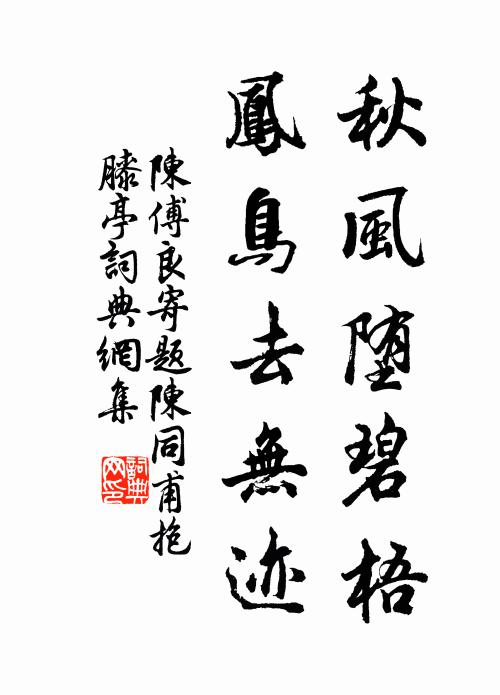 秋風堕碧梧
鳳鳥去無迹
陳傅良寄題陳同甫抱
膝亭詞典網集
詞典
网印